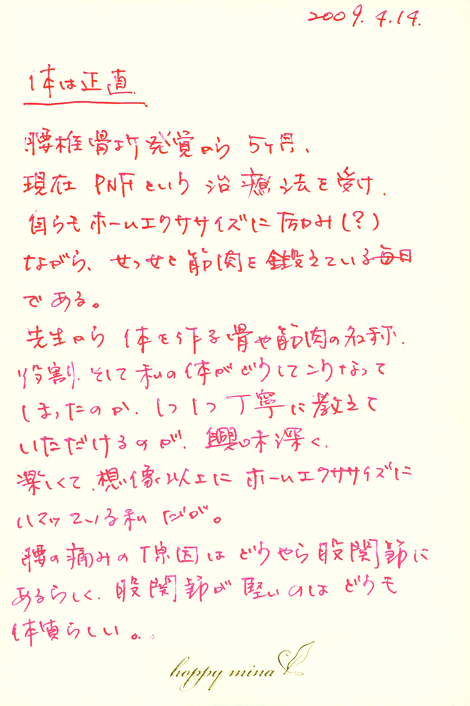 2009. 4.14.
体は正直
腰椎骨折発覚から 5ヶ月、
現在 PNFという 治療法を受け、
自らもホームエクササイズに励み(?)
ながら、せっせと筋肉を鍛えている毎日
である。
先生から 体を作る骨や筋肉の名称、
役割、そして私の体がどうしてこうなって
しまったのか、1つ1つ丁寧に教えて
いただけるのが、興味深く、
楽しくて、想像以上にホームエクササイズに
ハマッている私だが。
腰の痛みの原因は どうやら股関節に
あるらしく、股関節が堅いのは どうも
体質らしい。
happy mina